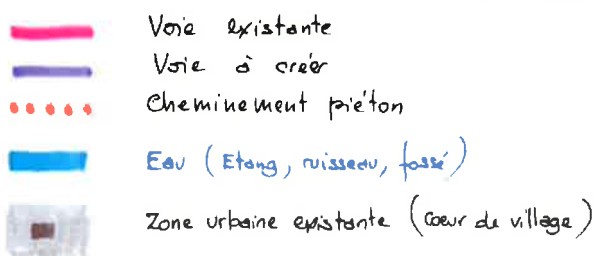 Voie existante
Voie à créer
Cheminement piéton
Eau (Etang, ruisseau, fossé)
Zone urbaine existante (Coeur de village)